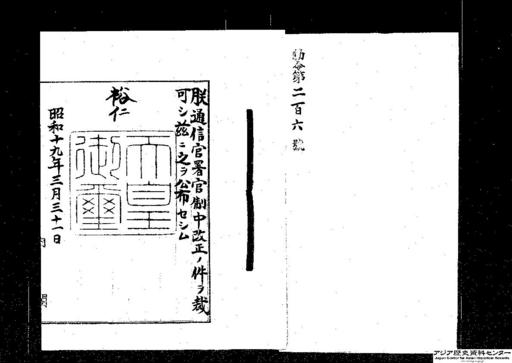 勅令第二百六號
朕通信官署官制中改正ノ件ヲ裁
可シ茲ニ之ヲ公布セシム
裕仁
天皇
御璽
昭和十九年三月三十一日
内閣
アジア歴史資料センター
Japan Center for Asian Historical Records